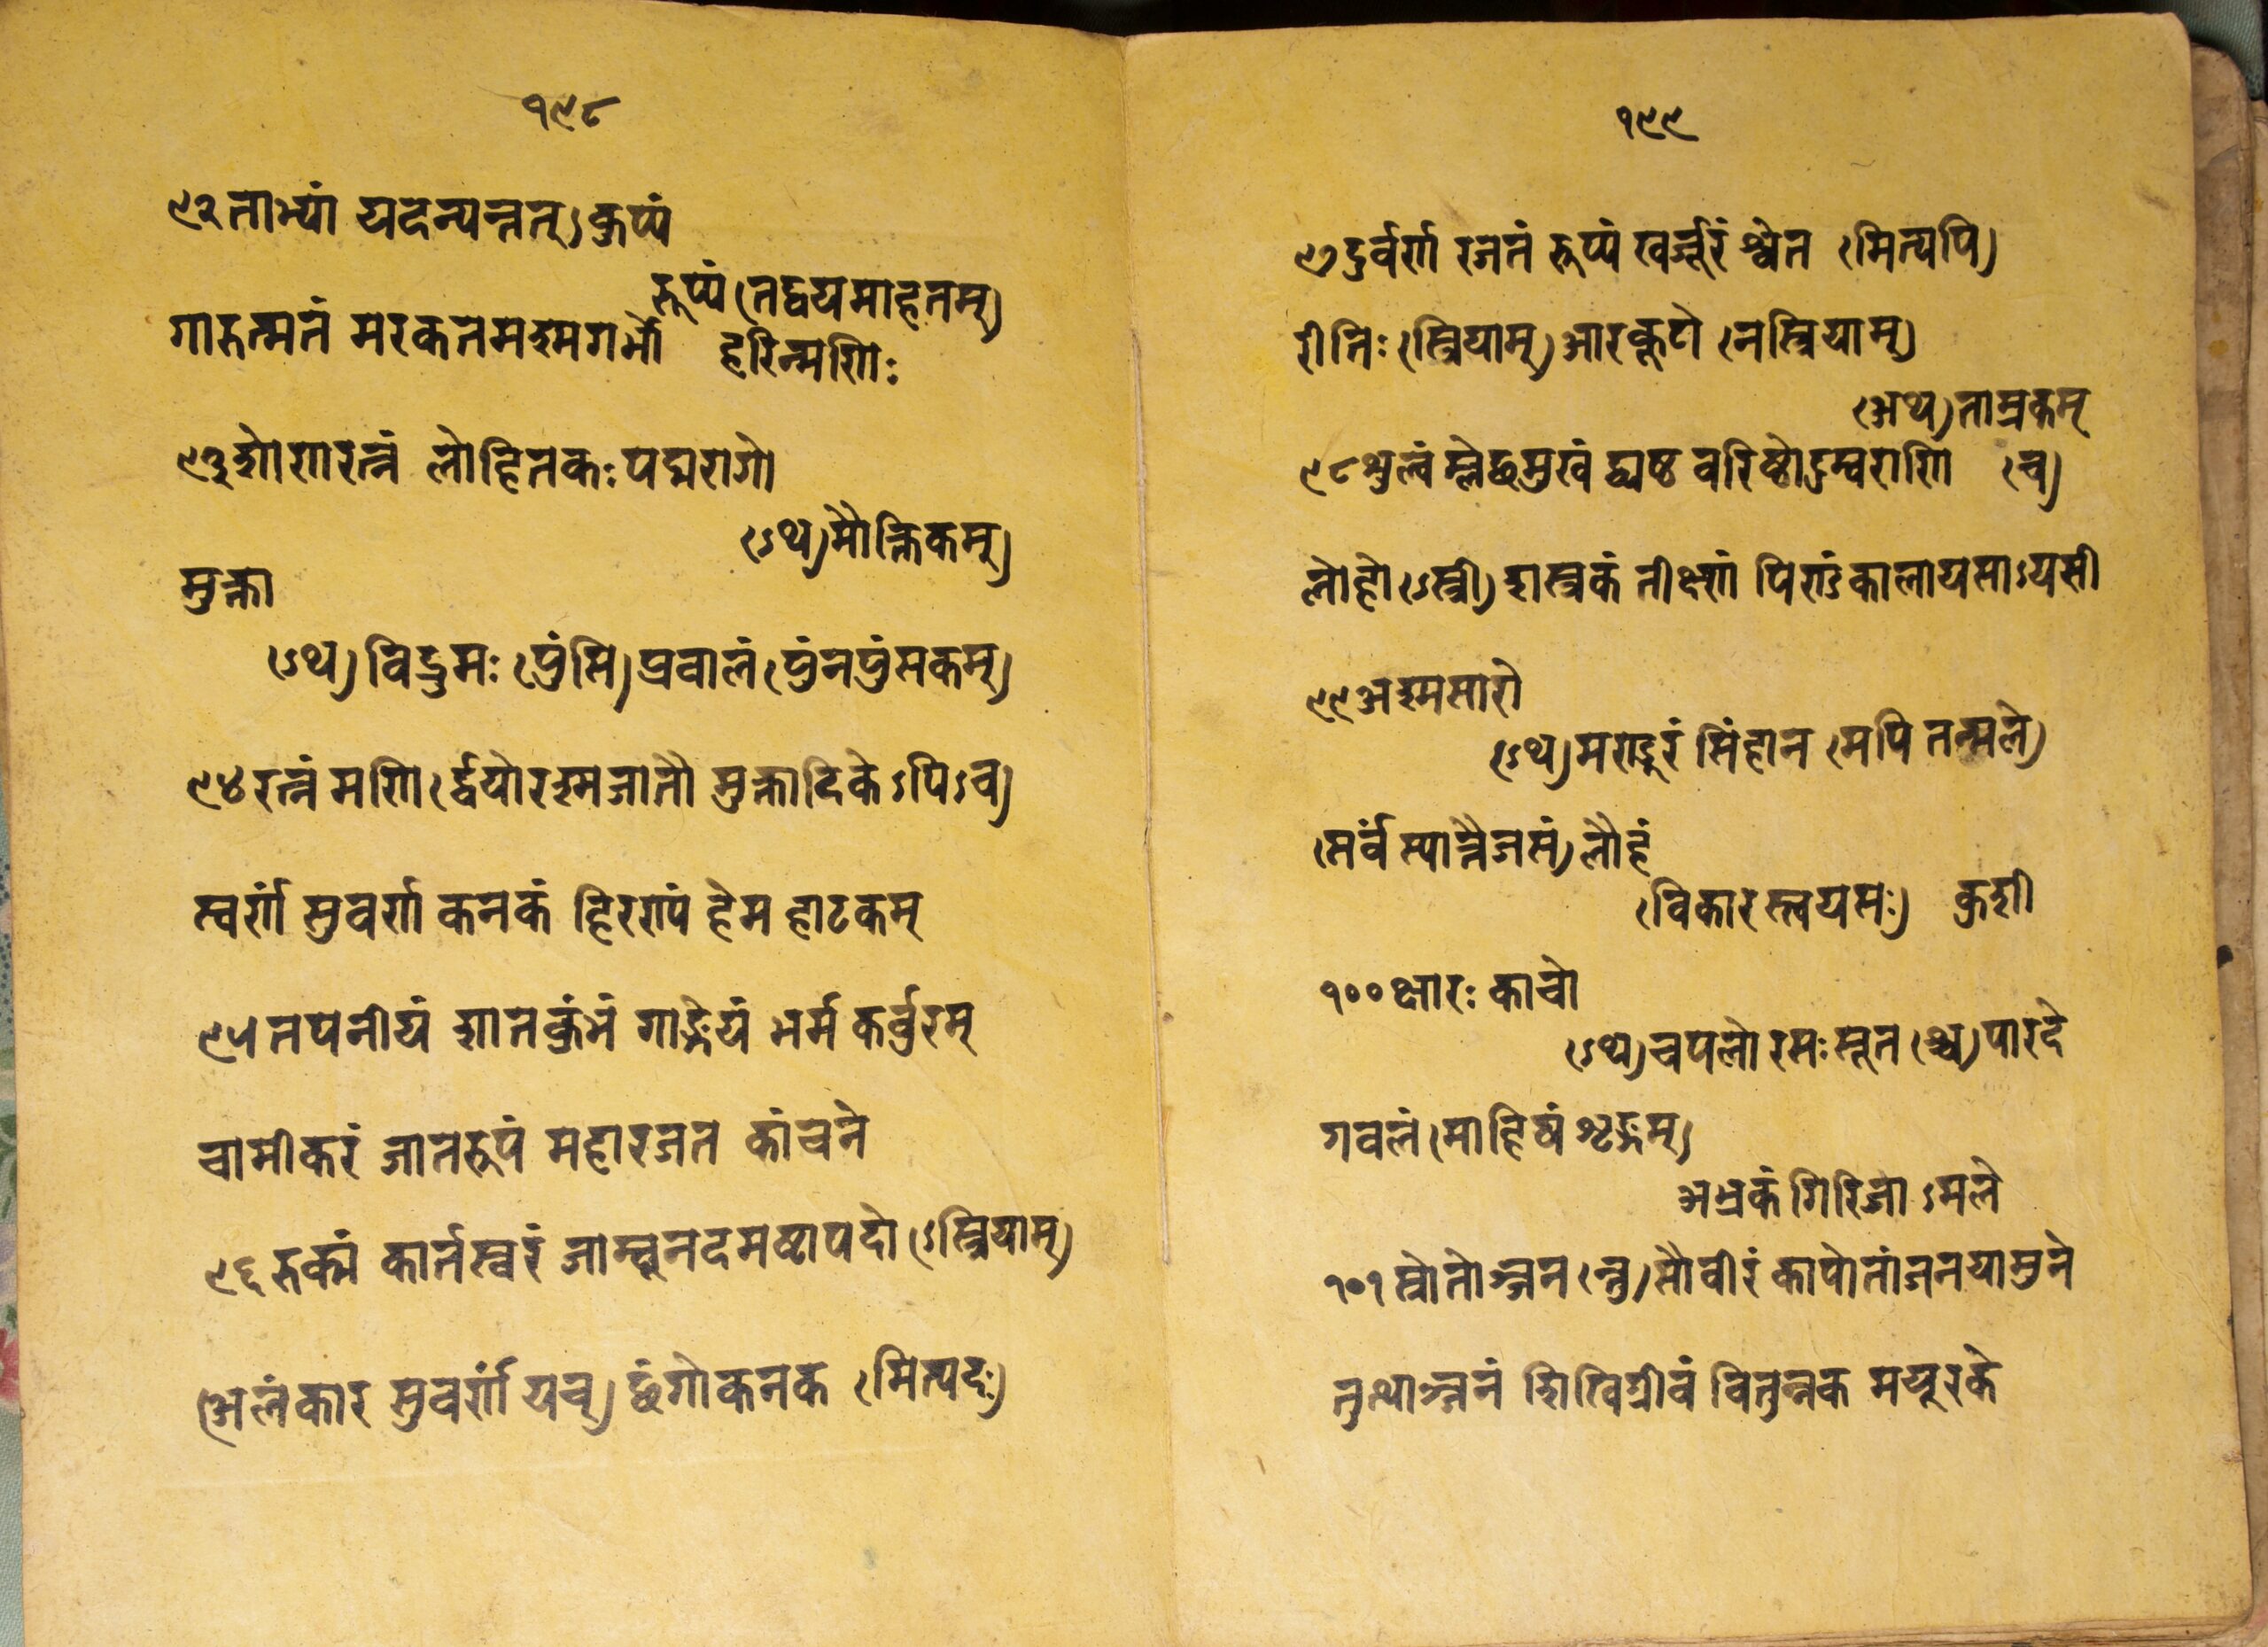 १९८
९२ ताभ्यां यदन्यत्तत्) कुप्यं
रूप्यं (तद्वयमाहतम्)
गारुत्मतं मरकतमश्मगर्भो हरिन्मणिः
९३ शोणरत्नं लोहितकः पद्मरागो
(ऽथ) मौक्तिकम्)
मुक्ता
(ऽथ) विद्रुमः (पुंसि) प्रवालं (पुंनपुंसकम्)
९४ रत्नं मणि (र्द्वयोरश्मजातौ मुक्तादिकेऽपिऽच)
स्वर्णं सुवर्णं कनकं हिरण्यं हेम हाटकम्
९५ तपनीयं शातकुंभं गाङ्गेयं भर्म कर्वुरम्
चामीकरं जातरूपं महारजत कांचने
९६ रुक्मं कार्तस्वरं जाम्बूनदमष्टापदो (ऽस्त्रियाम्)
(अलंकार सुवर्णं यच्) छृंगीकनक (मित्यदः)
१९९
९७ दुर्वर्णं रजतं रूप्यं खर्ज्जूरं श्वेत (मित्यपि)
रीतिः (स्त्रियाम्) आरकूटो (नस्त्रियाम्)
(अथ) ताम्रकम्
९८ शुल्वं म्लेछमुखं द्व्यष्ट वरिष्ठोदुम्बराणि (च)
लोहो (ऽस्त्री) शस्त्रकं तीक्ष्णं पिण्डं कालायसाऽयसी
९९ अश्मसारो
(ऽथ) मण्डूरं सिंहान (मपि तन्मले)
(सर्वं स्यात्तैजसं) लौहं
(विकारस्त्वयसः) कुशी
१०० क्षारः काचो
(ऽथ) चपलो रसः सूत (श्च) पारदे
गवलं (माहिषं शृङ्गम्)
अभ्रकं गिरिजाऽमले
१०१ स्रोतोञ्जन (न्तु) सौवीरं कापोतांजनयामुने
तुत्थाञ्जनं शिखिग्रीवं वितुन्नक मयूरके